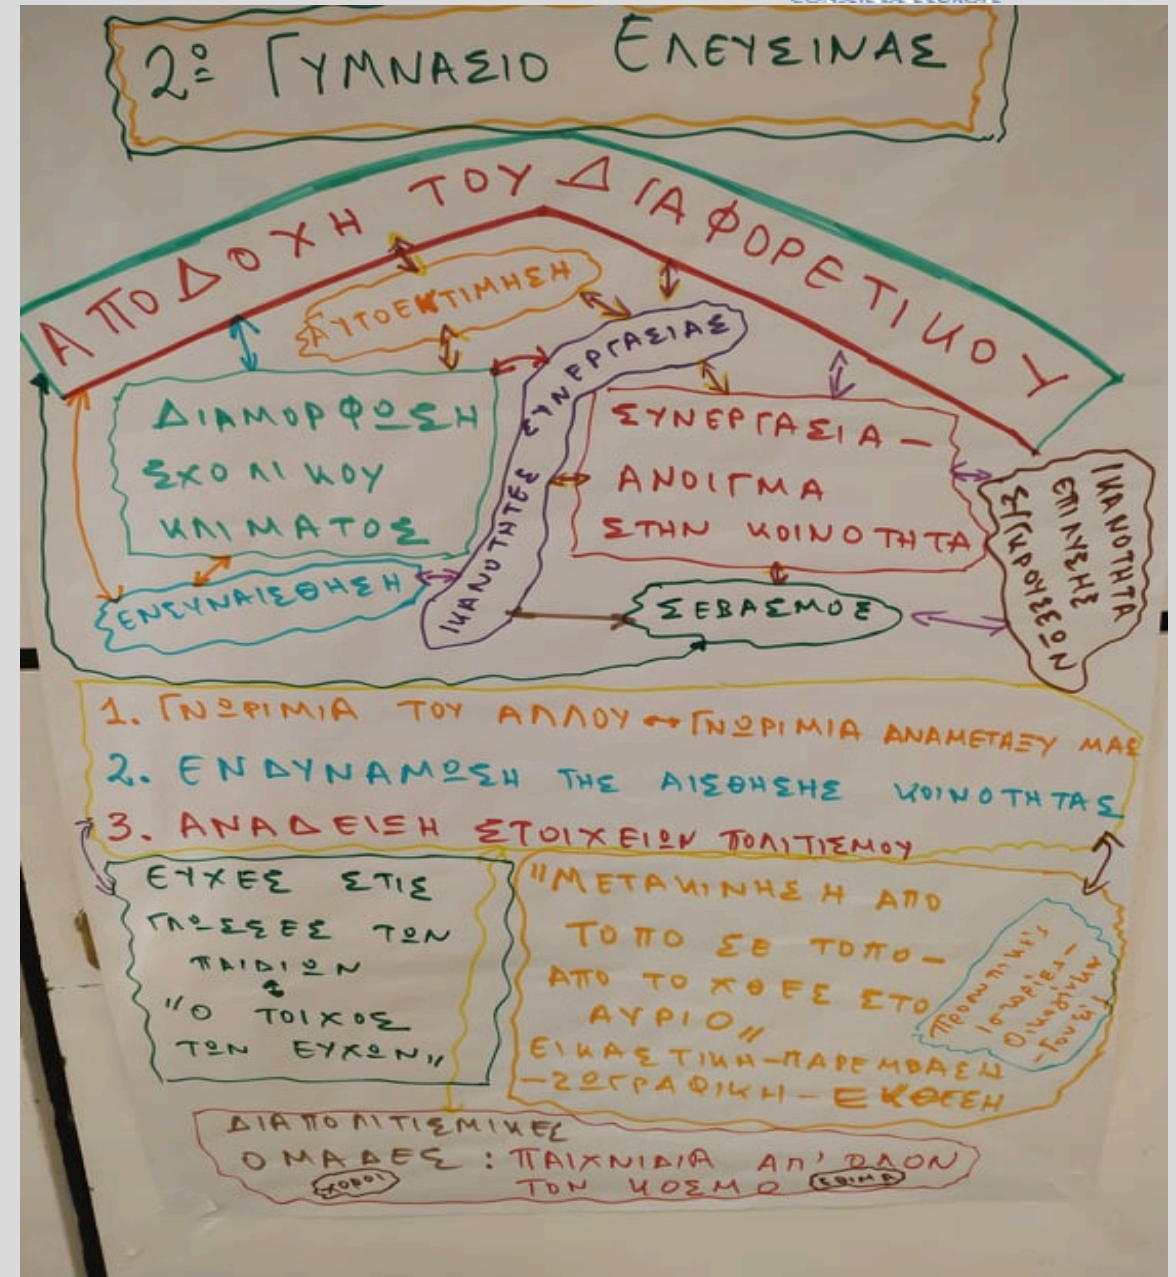 2ο ΓΥΜΝΑΣΙΟ ΕΛΕΥΣΙΝΑΣ
ΑΠΟΔΟΧΗ ΤΟΥ ΔΙΑΦΟΡΕΤΙΚΟΥ
ΑΥΤΟΕΚΤΙΜΗΣΗ
ΔΙΑΜΟΡΦΩΣΗ
ΣΧΟΛΙΚΟΥ
ΚΛΙΜΑΤΟΣ
ΙΚΑΝΟΤΗΤΕΣ ΣΥΝΕΡΓΑΣΙΑΣ
ΣΥΝΕΡΓΑΣΙΑ -
ΑΝΟΙΓΜΑ
ΣΤΗΝ ΚΟΙΝΟΤΗΤΑ
ΙΚΑΝΟΤΗΤΑ
ΕΠΙΛΥΣΗΣ
ΣΥΓΚΡΟΥΣΕΩΝ
ΕΝΣΥΝΑΙΣΘΗΣΗ
ΣΕΒΑΣΜΟΣ
1. ΓΝΩΡΙΜΙΑ ΤΟΥ ΑΛΛΟΥ ↔ ΓΝΩΡΙΜΙΑ ΑΝΑΜΕΤΑΞΥ ΜΑΣ
2. ΕΝΔΥΝΑΜΩΣΗ ΤΗΣ ΑΙΣΘΗΣΗΣ ΚΟΙΝΟΤΗΤΑΣ
3. ΑΝΑΔΕΙΞΗ ΣΤΟΙΧΕΙΩΝ ΠΟΛΙΤΙΣΜΟΥ
ΕΥΧΕΣ ΣΤΙΣ
ΓΛΩΣΣΕΣ ΤΩΝ
ΠΑΙΔΙΩΝ
"Ο ΤΟΙΧΟΣ
ΤΩΝ ΕΥΧΩΝ"
"ΜΕΤΑΚΙΝΗΣΗ ΑΠΟ
ΤΟΠΟ ΣΕ ΤΟΠΟ -
ΑΠΟ ΤΟ ΧΘΕΣ ΣΤΟ
ΑΥΡΙΟ"
ΕΙΚΑΣΤΙΚΗ - ΠΑΡΕΜΒΑΣΗ
- ΖΩΓΡΑΦΙΚΗ - ΕΚΘΕΣΗ
Προσωπικές
ιστορίες -
Οικογένειών
- Γονείς
ΔΙΑΠΟΛΙΤΙΣΜΙΚΕΣ
ΟΜΑΔΕΣ : ΠΑΙΧΝΙΔΙΑ ΑΠ' ΟΛΟΝ
ΧΟΡΟΙ ΤΟΝ ΚΟΣΜΟ ΕΘΙΜΑ